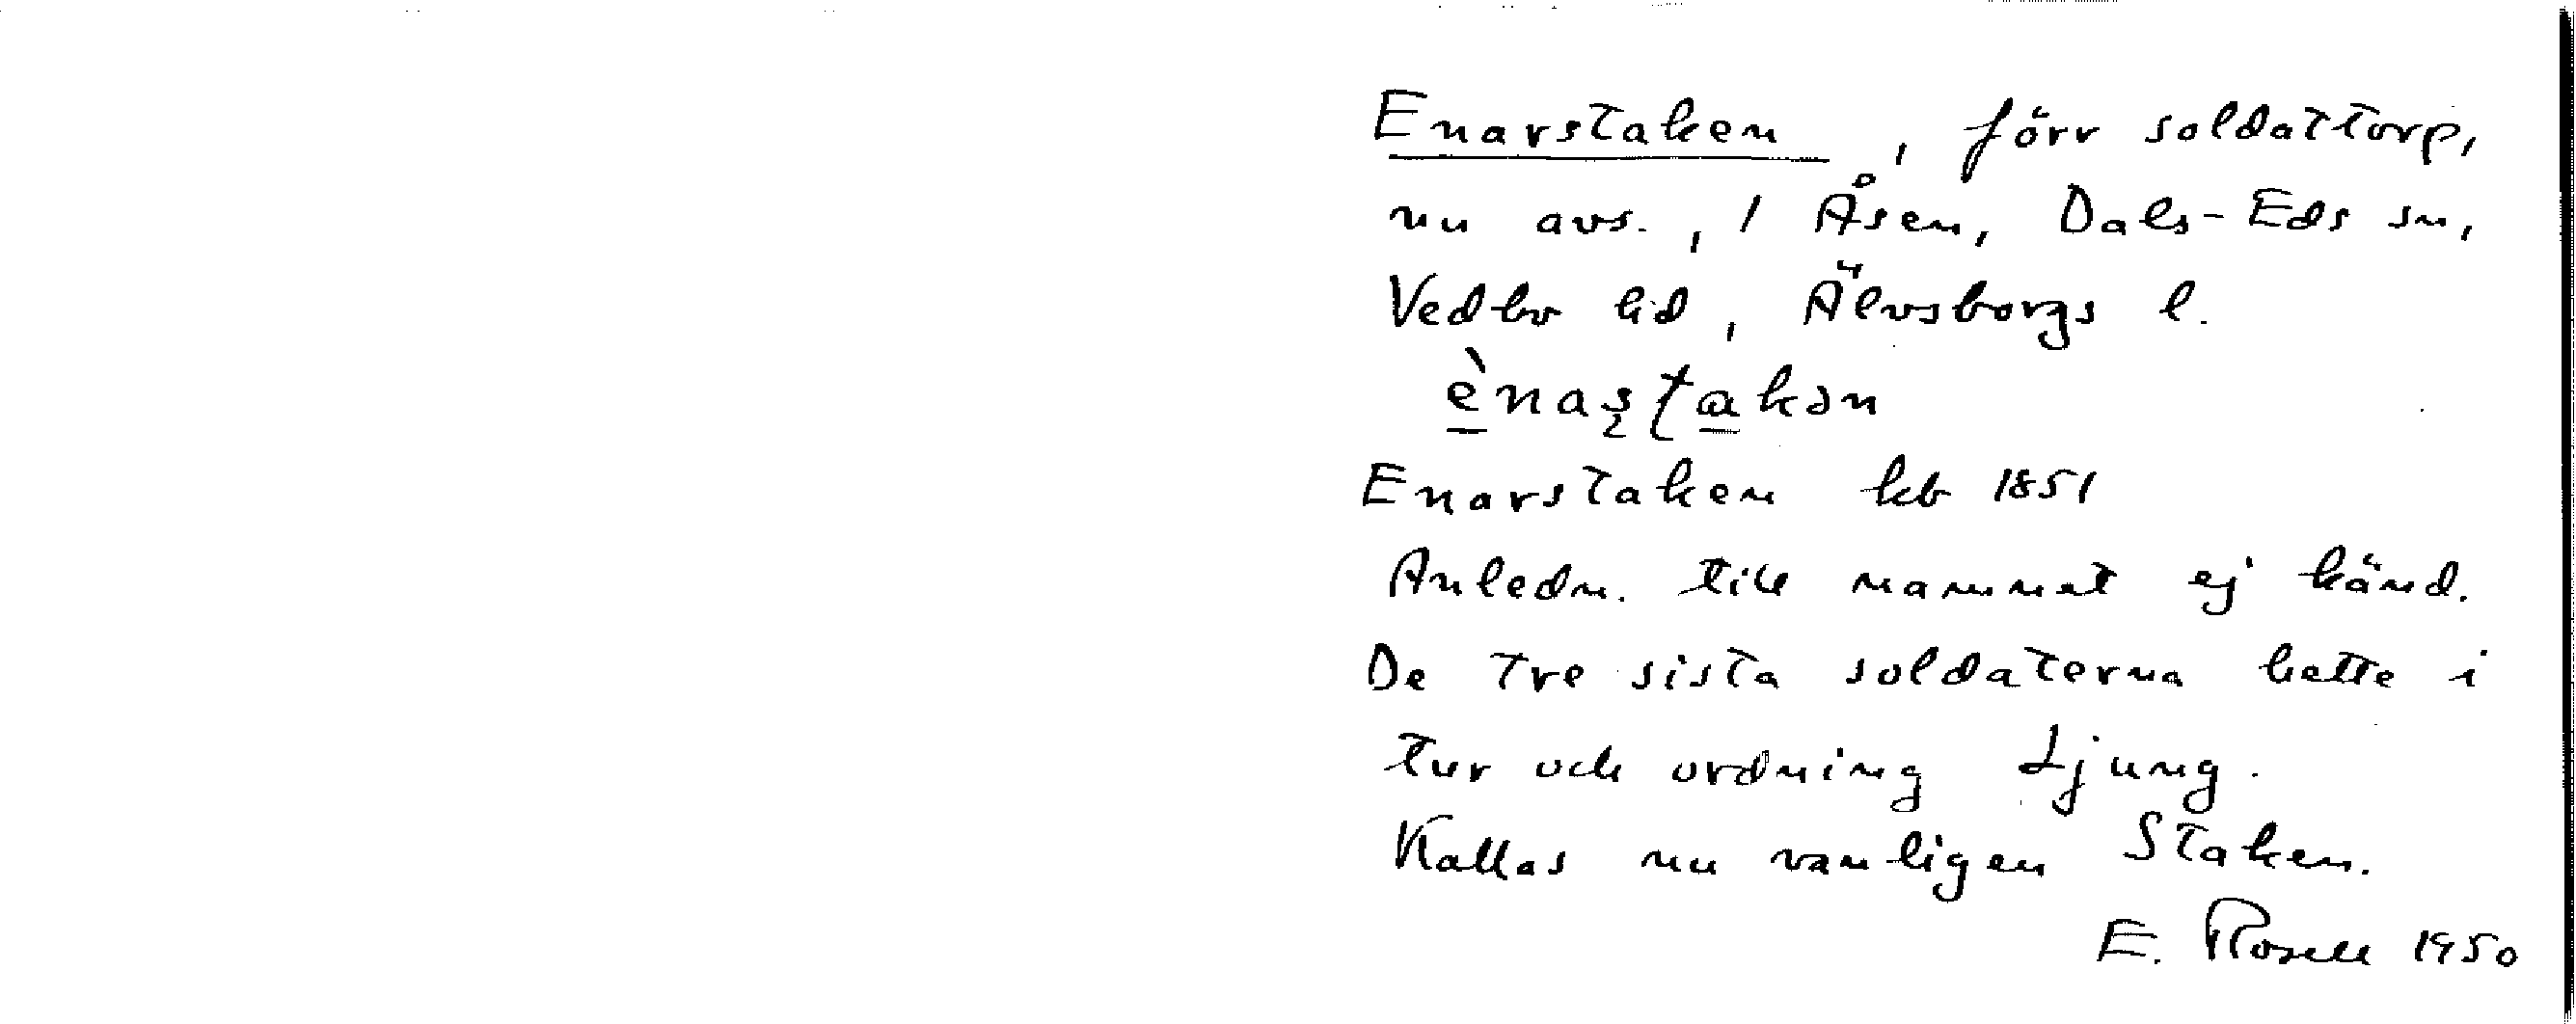 Enarstaken, förr soldattorp,
nu avs., 1 Åsen, Dals-Eds sn,
Vedbo hd, Älvsborgs l.
ènaʂʈakən
Enarstaken kb 1851
Anledn. till namnet ej känd.
De tre sista soldaterna hette i
tur och ordning Ljung.
Kallas nu vanligen Staken.
E. Rosell 1950